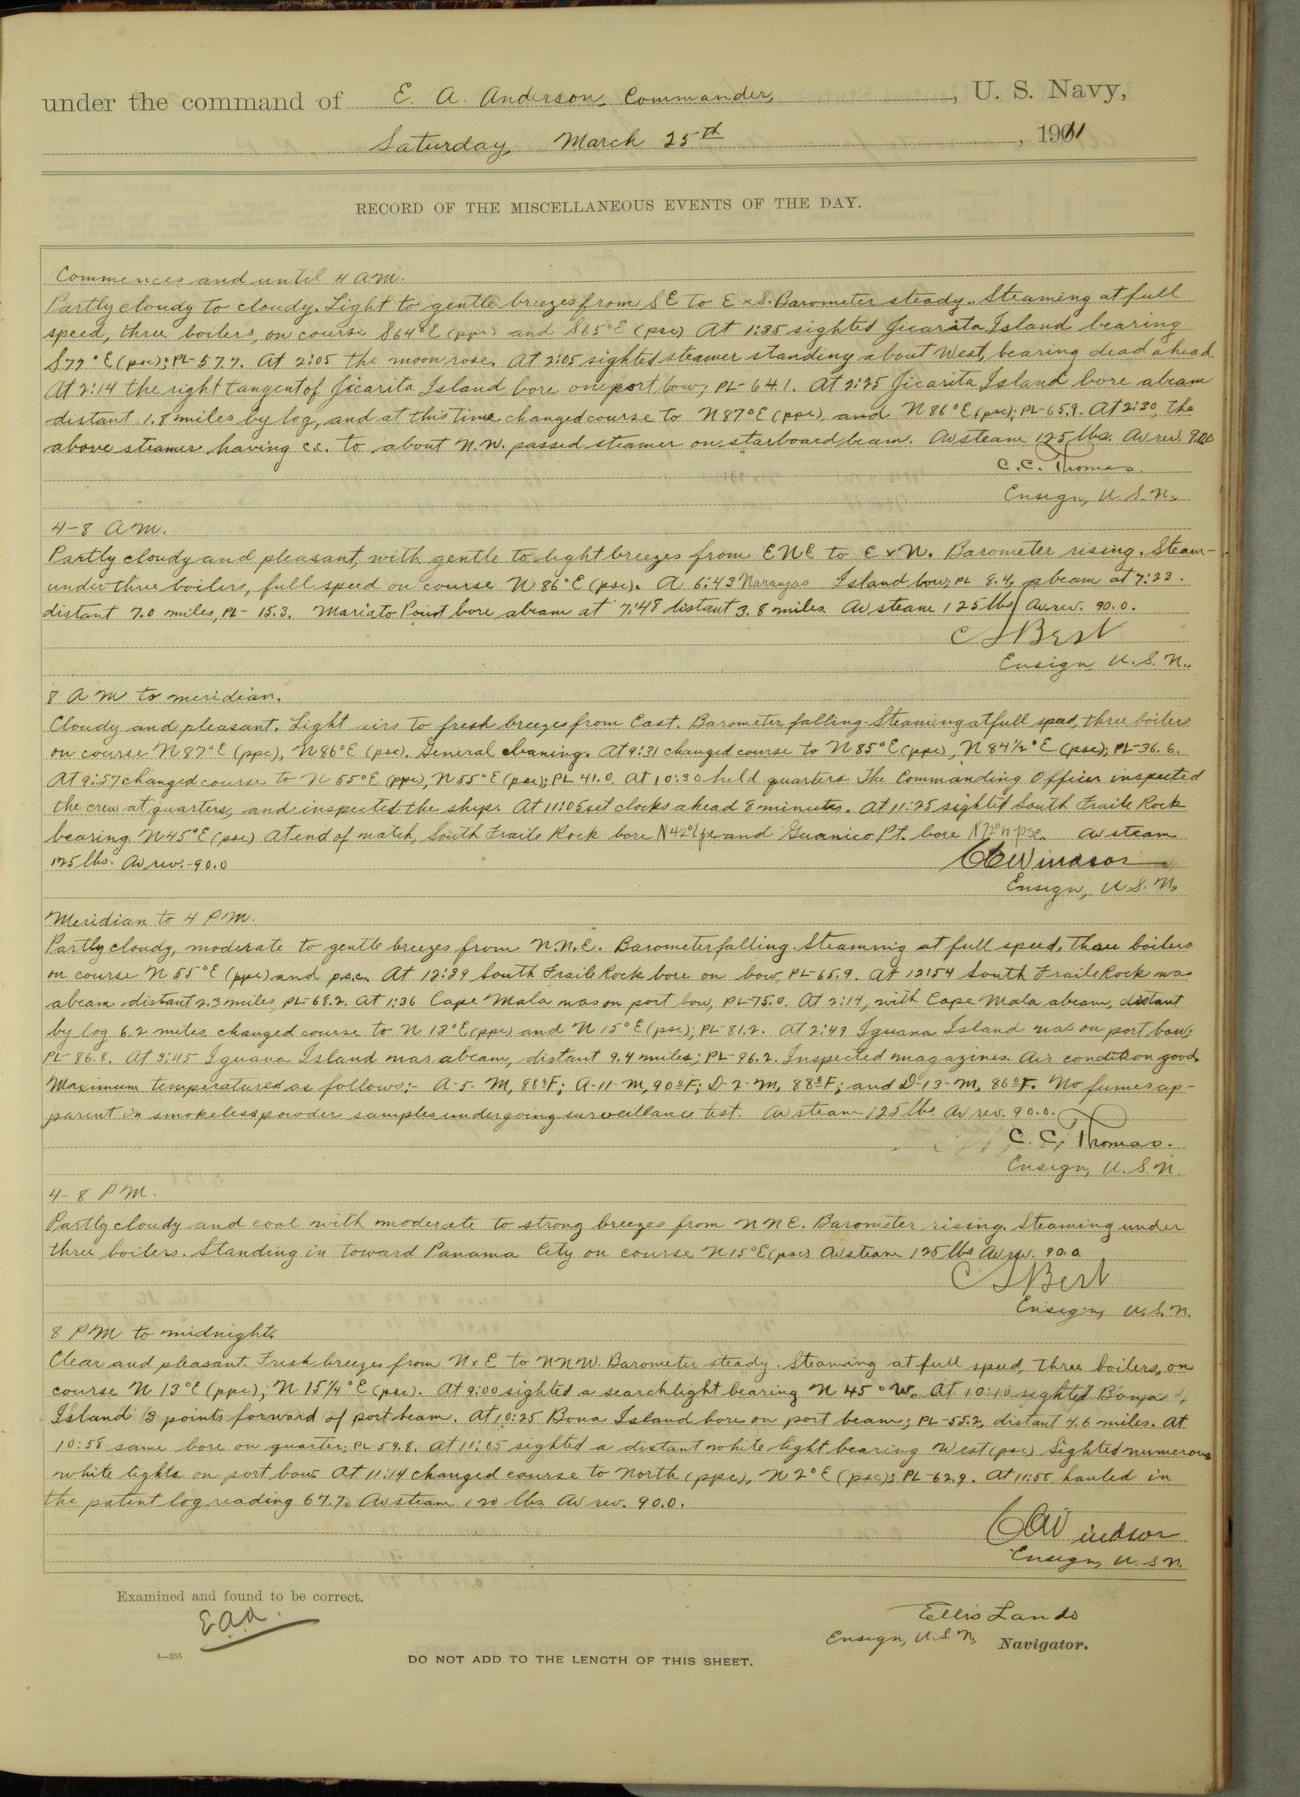 under the command of E. A. Anderson, Commander, , U. S. Navy,
Saturday, March 25th , 1911
RECORD OF THE MISCELLANEOUS EVENTS OF THE DAY.
Commences and until 4 A.M.
Partly cloudy to cloudy. Light to gentle breezes from SE to E x S. Barometer steady. Steaming at full
speed, three boilers, on course S64°E (ppc) and S65°E (psc) At 1:35 sighted Jicarita Island bearing
S77°E (psc); PL-57.7. At 2:05 the moon rose. At 2:05 sighted steamer standing about West, bearing dead ahead.
At 2:14 the right tangent of Jicarita Island bore on port bow; PL-64.1. At 2:25 Jicarita Island bore abeam
distant 1.8 miles by log, and at this time changed course to N87°E (ppc) and N86°E (psc); PL-65.9. At 2:30, the
above steamer having c.c. to about N.W. passed steamer on starboard beam. Av steam 125 lbs. Av rev. 90.0
C. C. Thomas
Ensign, U. S. N.
4-8 A.M.
Partly cloudy and pleasant, with gentle to light breezes from ENE to E x N. Barometer rising. Steam-
under three boilers, full speed on course N 86°E (psc). A 6:43 Naranjas Island bow; PL 8.4, abeam at 7:23.
distant 7.0 miles, PL- 15.3. Mariato Point bore abeam at 7:48 distant 3.8 miles. Av steam 125 lbs Av rev. 90.0.
Ensign U. S. N.
8 A M to meridian.
Cloudy and pleasant. Light airs to fresh breezes from East. Barometer falling. Steaming at full speed, three boilers
on course N87°E (ppc), N86°E (psc). General cleaning. At 9:31 changed course to N85°E (ppc), N 84½°E (psc); PL-36.6.
At 9:57 changed course to N 55°E (ppc), N55°E (psc); PL 41.0. At 10:30 held quarters. The Commanding Officer inspected
the crew at quarters, and inspected the ship. At 11:05 set clocks ahead 8 minutes. At 11:25 sighted South Fraile Rock
bearing N45°E (psc) At end of watch, South Fraile Rock bore N42°E psc and Guanico Pt. bore psc. Av steam
125 lbs. Av rev.-90.0
Windsor
Ensign, U. S. N.
Meridian to 4 P.M.
Partly cloudy, moderate to gentle breezes from N.N.E. Barometer falling. Steaming at full speed, three boilers
on course N 55°E (ppc) and psc. At 12:39 South Fraile Rock bore on bow, PL-65.9. At 12:54 South Fraile Rock was
abeam distant 2.3 miles, PL-68.2. At 1:36 Cape Mala was on port bow, PL-75.0. At 2:14, with Cape Mala abeam, distant
by log 6.2 miles changed course to N 13°E (ppc) and N 15°E (psc); PL-81.2. At 2:49 Iguana Island was on port bow,
PL-86.8. At 3:45 Iguana Island was abeam, distant 9.4 miles; PL-96.2. Inspected magazines. Air condition good
Maximum temperatures as follows:- A-5-M, 88°F; A-11-M, 90°F; D-2-M, 88°F; and D-13-M, 86°F. No fumes ap-
parent in smokeless powder samples undergoing surveillance test. Av steam 125 lbs Av rev. 90.0.
C. C. Thomas.
Ensign, U. S. N.
4-8 P M.
Partly cloudy and cool with moderate to strong breezes from NNE. Barometer rising. Steaming under
three boilers. Standing in toward Panama City on course N15°E (psc) Av steam 125 lbs Av rev. 90.0
Ensign, U. S. N.
8 PM to midnight.
Clear and pleasant. Fresh breezes from N x E to NNW. Barometer steady. Steaming at full speed, three boilers, on
course N 13°E (ppc); N 15¼°E (psc). At 9:00 sighted a searchlight bearing N 45° W. At 10:10 sighted Bona
Island 3 points forward of port beam. At 10:25 Bona Island bore on port beam; PL-55.2, distant 4.6 miles. At
10:58 same bore on quarter; PL 59.8. At 11:05 sighted a distant white light bearing West (psc) Sighted numerous
white lights on port bow. At 11:14 changed course to North (ppc), N 2°E (psc); PL-62.9. At 11:55 hauled in
the patent log reading 67.7. Av steam 120 lbs Av rev. 90.0.
Windsor
Ensign, U. S. N.
Examined and found to be correct.
E.A.A.
Ellis Lando
Ensign, U. S. N. Navigator.
DO NOT ADD TO THE LENGTH OF THIS SHEET.